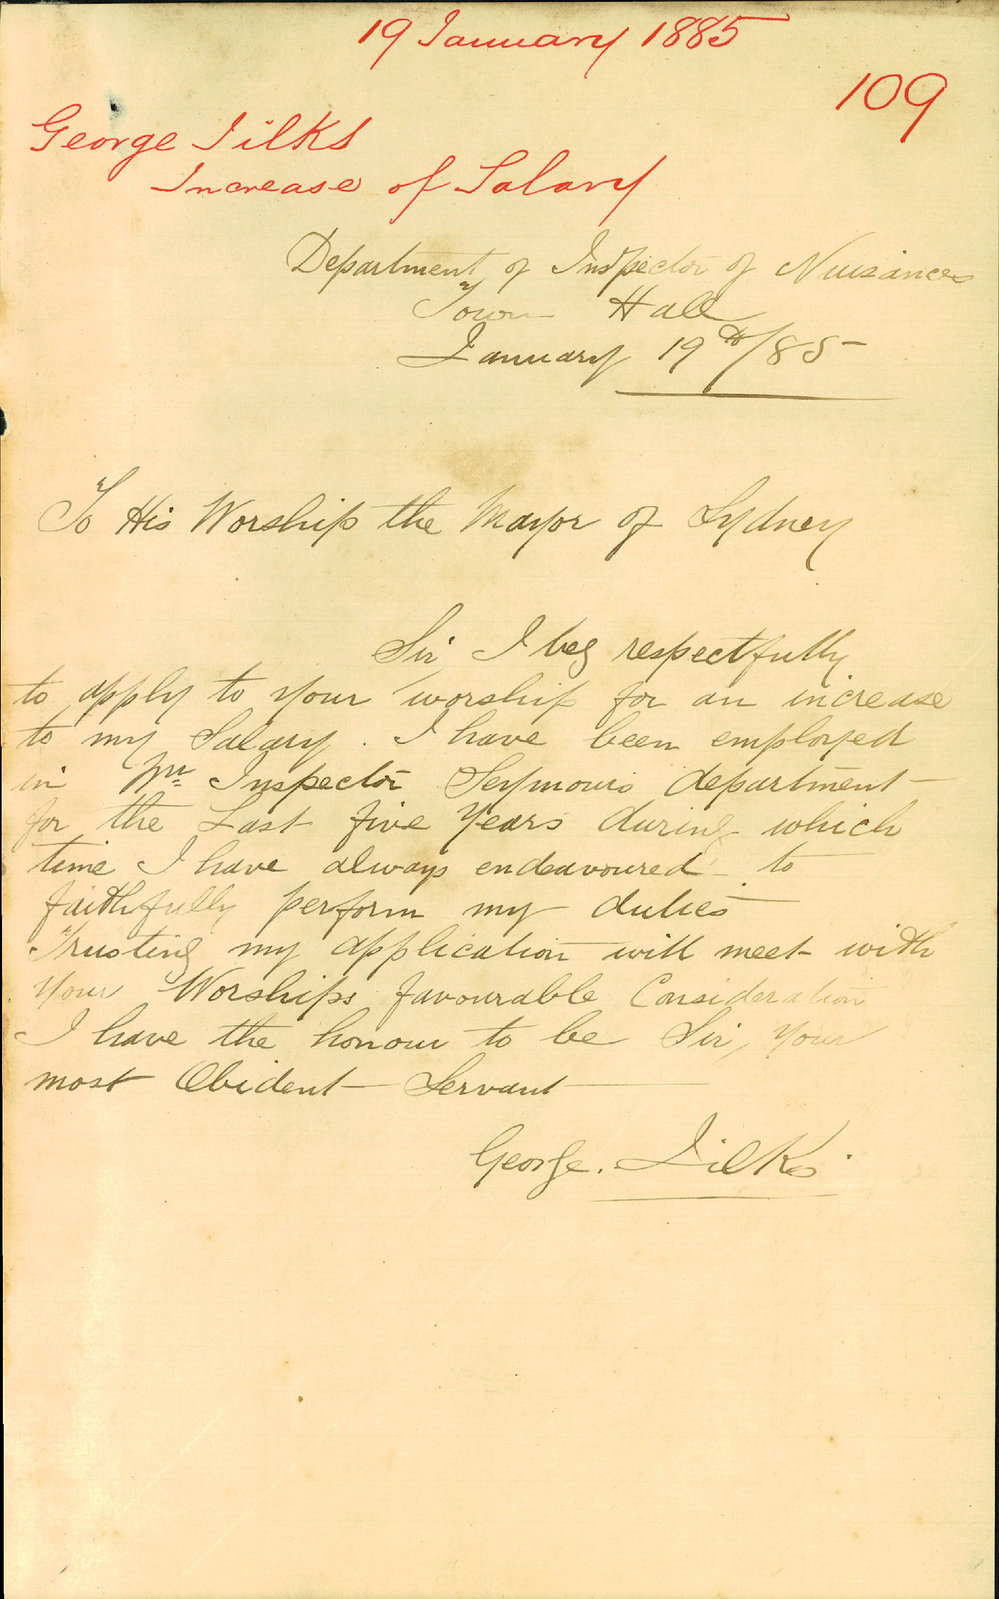 19 January 1885
109
George Jilks
Increase of Salary
Department of Inspector of Nuisances
Town Hall
January 19th/85
To His Worship the Mayor of Sydney
Sir I beg respectfully
to apply to your worship for an increase
to my Salary. I have been employed
in Mr Inspector Seymours department
for the Last five Years during which
time I have always endeavoured to
faithfully perform my duties
Trusting my application will meet with
Your Worships favourable Consideration
I have the honour to be Sir, Your
most Obident Servant
George. Jilks